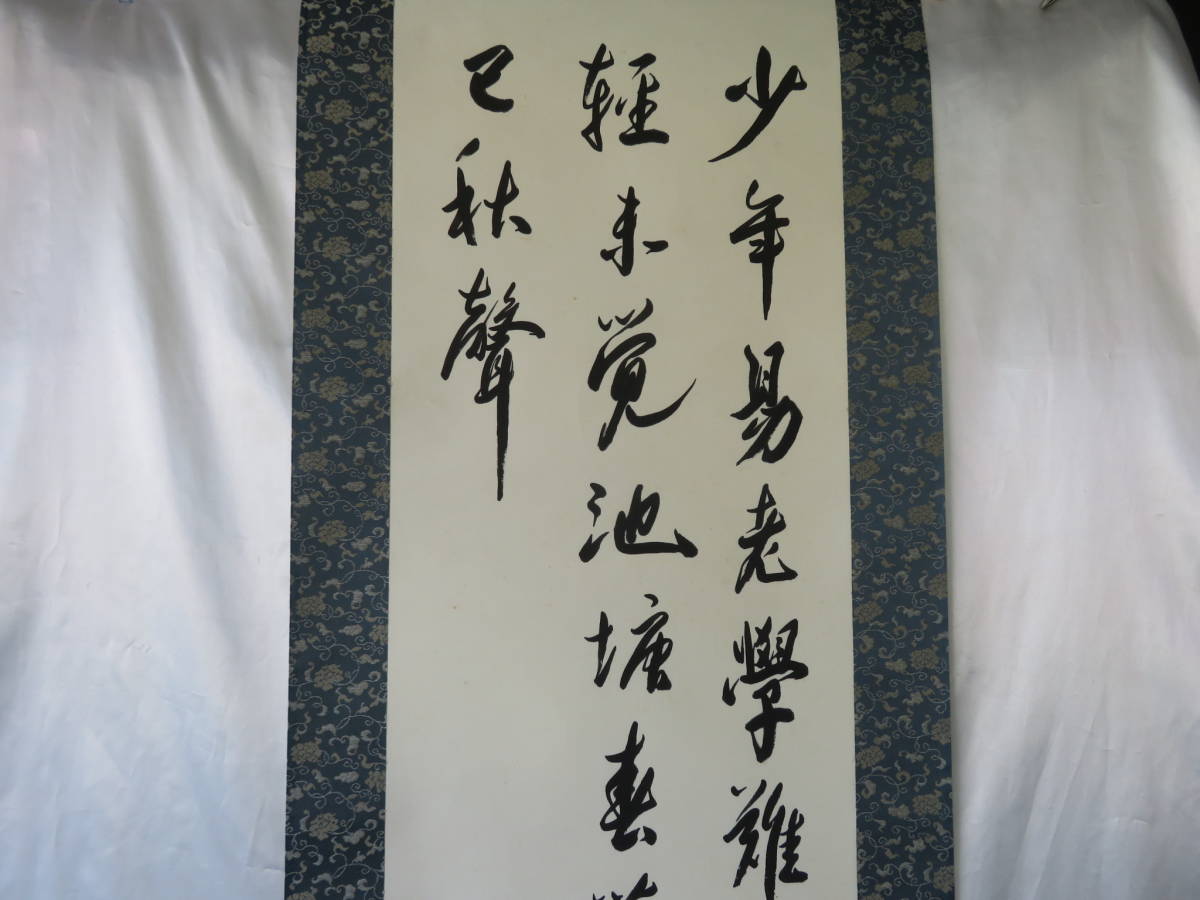 少年易老學難
輕未覚池塘春
已秋聲